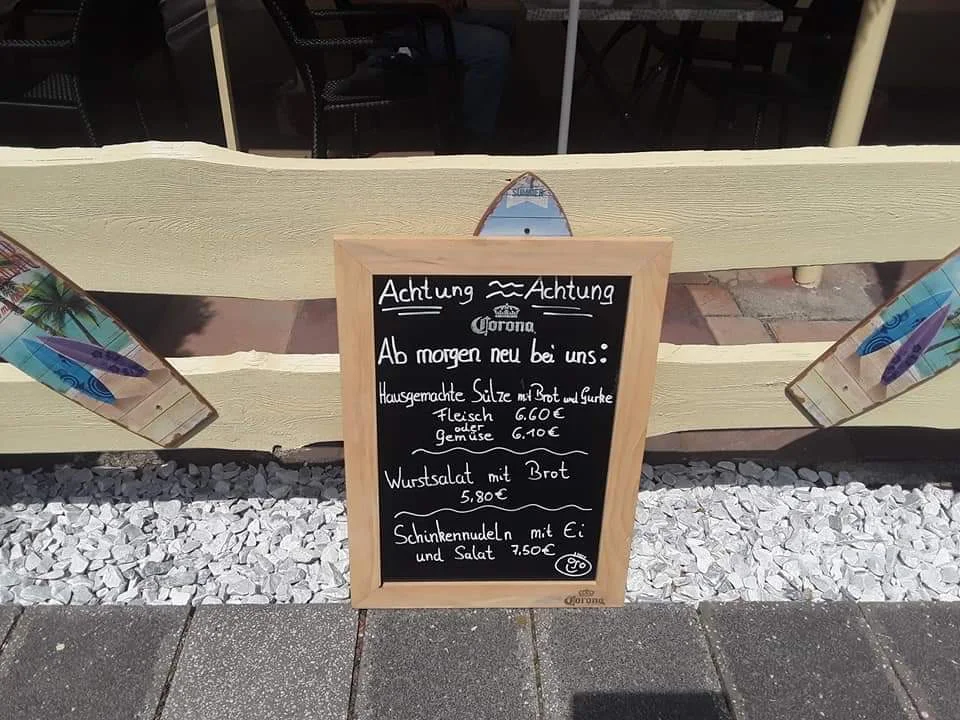 SUMMER
Achtung ≈ Achtung
Corona
Ab morgen neu bei uns:
Hausgemachte Sülze mit Brot und Gurke
Fleisch 6.60€
oder
Gemüse 6.10€
Wurstsalat mit Brot
5,80€
Schinkennudeln mit Ei
und Salat 7,50€
Corona